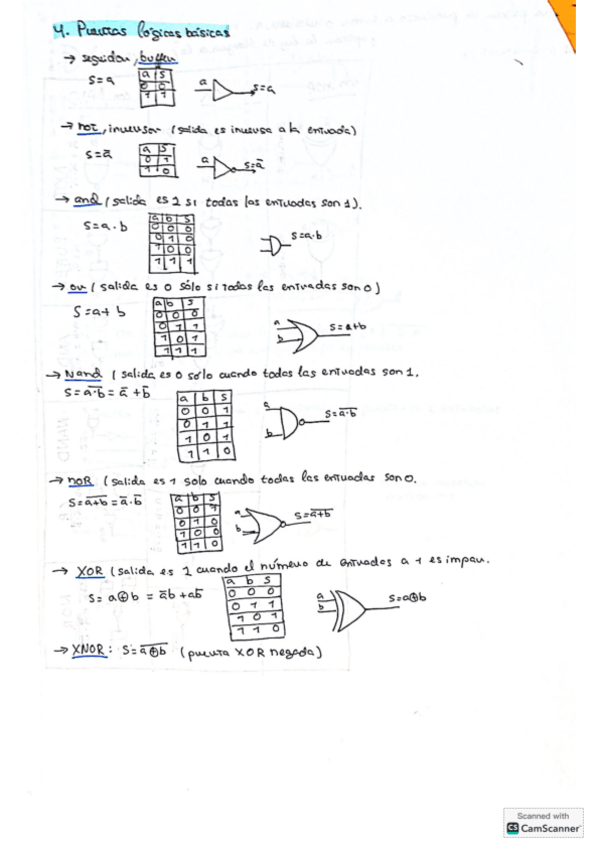 4. Puertas lógicas básicas
→ seguidor, buffer
S=a
a s
0 0
1 1
a S=a
→ not, inversor (salida es inversa a la entrada)
S=a̅
a s
0 1
1 0
a S=a̅
→ and (salida es 1 si todas las entradas son 1).
S=a·b
a b s
0 0 0
0 1 0
1 0 0
1 1 1
S=a·b
→ or (salida es 0 sólo si todas las entradas son 0)
S=a+b
a b s
0 0 0
0 1 1
1 0 1
1 1 1
a
b
S=a+b
→ Nand (salida es 0 sólo cuando todas las entradas son 1.
S=a̅·̅b̅ = a̅+b̅
a b s
0 0 1
0 1 1
1 0 1
1 1 0
a
b
S=a̅·̅b̅
→ noR (salida es 1 solo cuando todas las entradas son 0.
S=a̅+̅b̅ = a̅·b̅
a b s
0 0 1
0 1 0
1 0 0
1 1 0
a
b
S=a̅+̅b̅
→ XOR (salida es 1 cuando el número de entradas a 1 es impar.
S=a⊕b = a̅b+ab̅
a b s
0 0 0
0 1 1
1 0 1
1 1 0
a
b
S=a⊕b
→ XNOR: S=a̅⊕̅b̅ (puerta XOR negada)
Scanned with
CS CamScanner